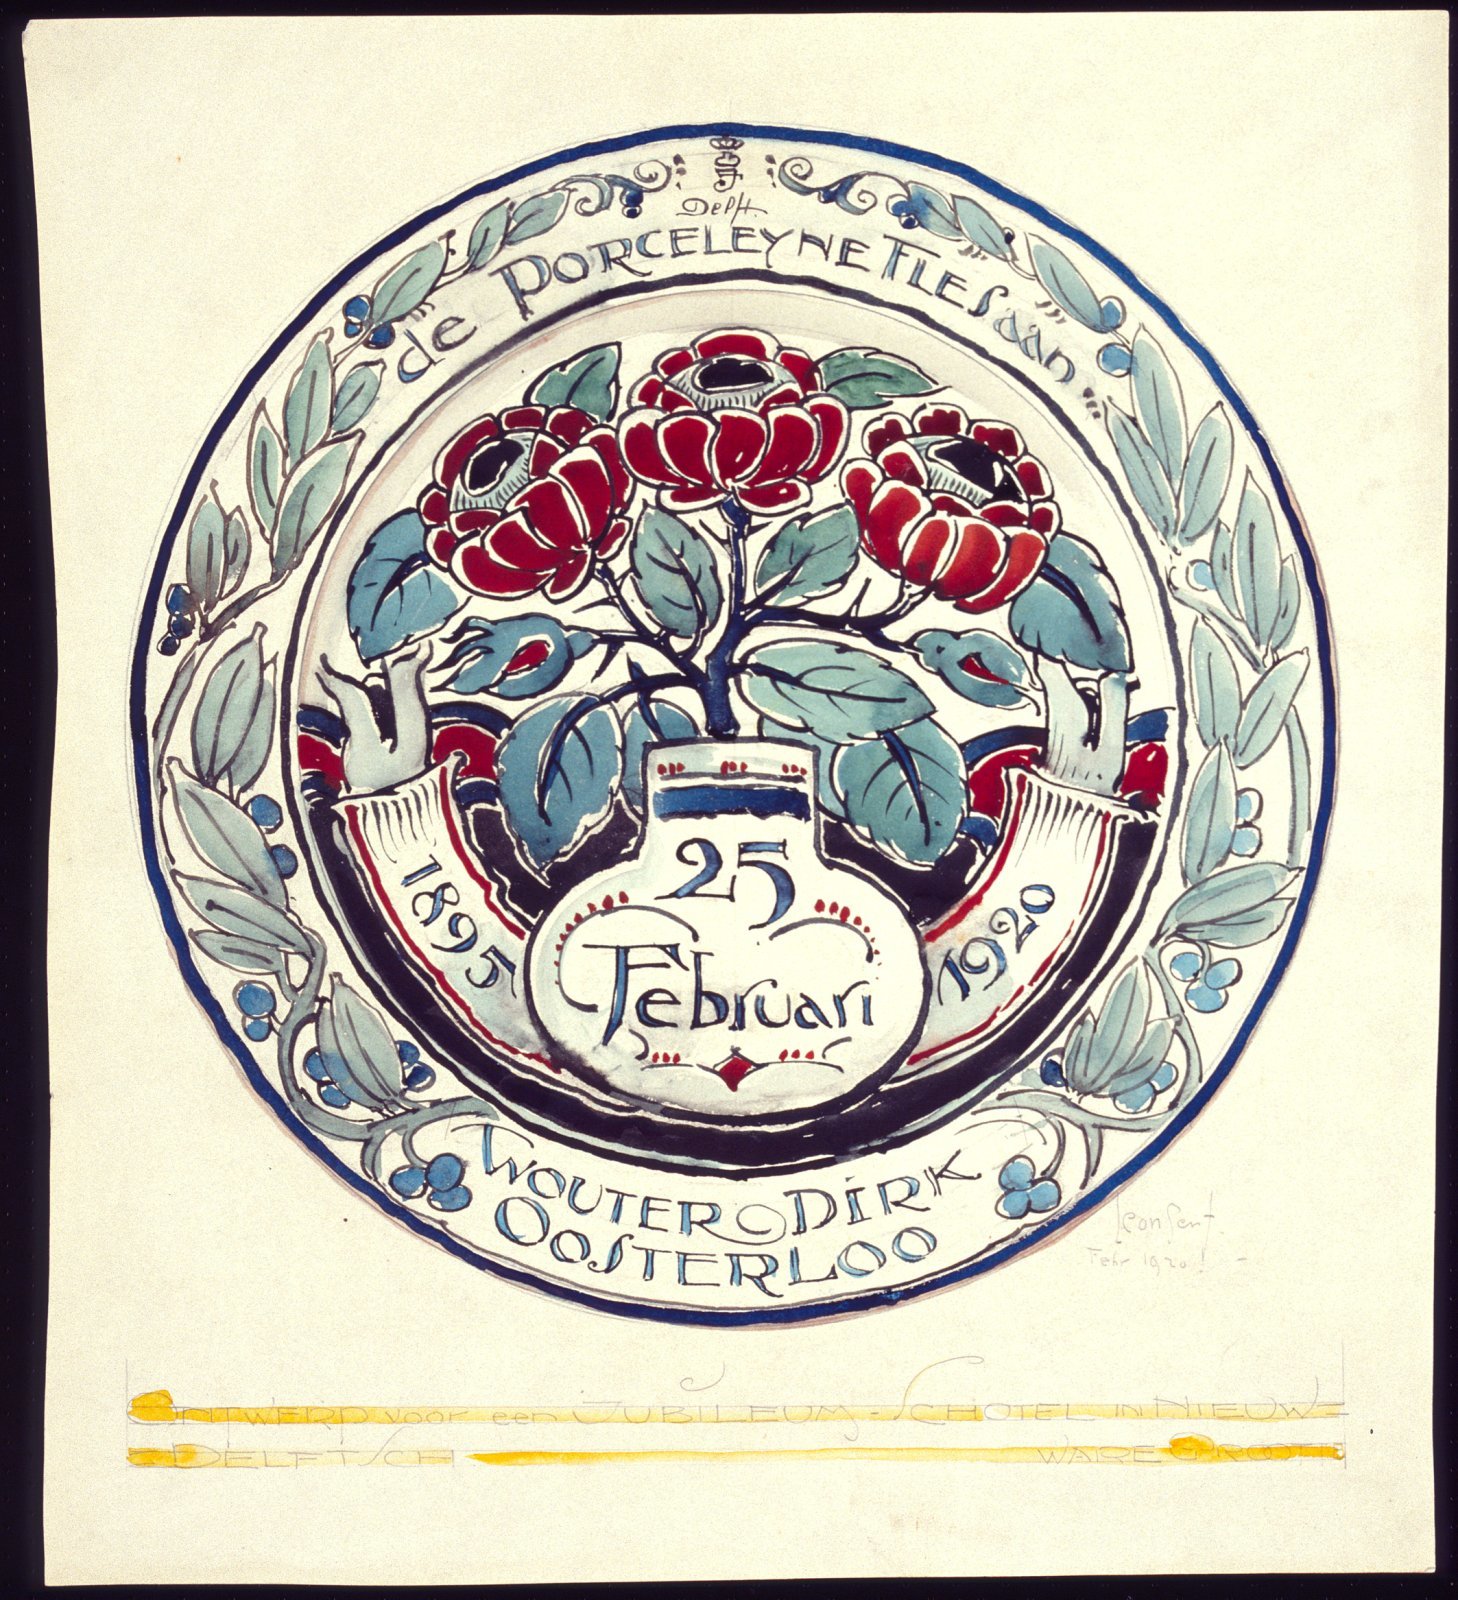 Delft.
de PORCELEYNE FLES aan
25
Februari
1895
1920
WOUTER DIRK
OOSTERLOO
Leon Senf.
Febr 1920!
ONTWERP voor een JUBILEUM-SCHOTEL IN NIEUW=
=DELFTSCH WARE GROOTTE